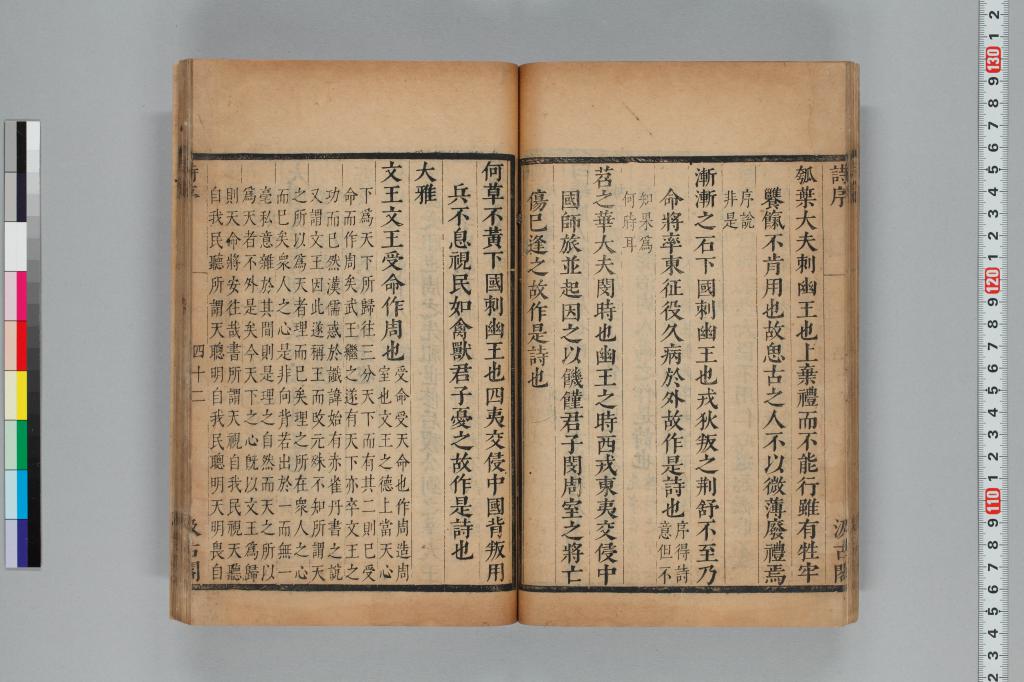 詩序
汲古閣
瓠葉大夫刺幽王也上棄禮而不能行雖有牲牢
饔餼不肯用也故思古之人不以微薄廢禮焉
序說
非是
漸漸之石下國刺幽王也戎狄叛之荆舒不至乃
命將率東征役久病於外故作是詩也
序得詩
意但不
知果為
何時耳
苕之華大夫閔時也幽王之時西戎東夷交侵中
國師旅並起因之以饑饉君子閔周室之將亡
傷已逢之故作是詩也
何草不黃下國刺幽王也四夷交侵中國背叛用
兵不息視民如禽獸君子憂之故作是詩也
大雅
文王文王受命作周也
受命受天命也作周造周
室也文王之德上當天心
下爲天下所歸往三分天下而有其二則已受
命而作周矣武王繼之遂有天下亦卒文王之
功而已然漢儒惑於讖諱始有赤雀丹書之說
又謂文王因此遂稱王而改元殊不知所謂天
之所以爲天者理而已矣理之所在衆人之心
而已矣衆人之心是非向背若出於一而無一
毫私意雜於其間則是理之自然而天之所以
爲天者不外是矣今天下之心旣以文王爲歸
則天命將安往哉書所謂天視自我民視天聽
自我民聽所謂天聰明自我民聰明天明畏自
四十二
汲古閣